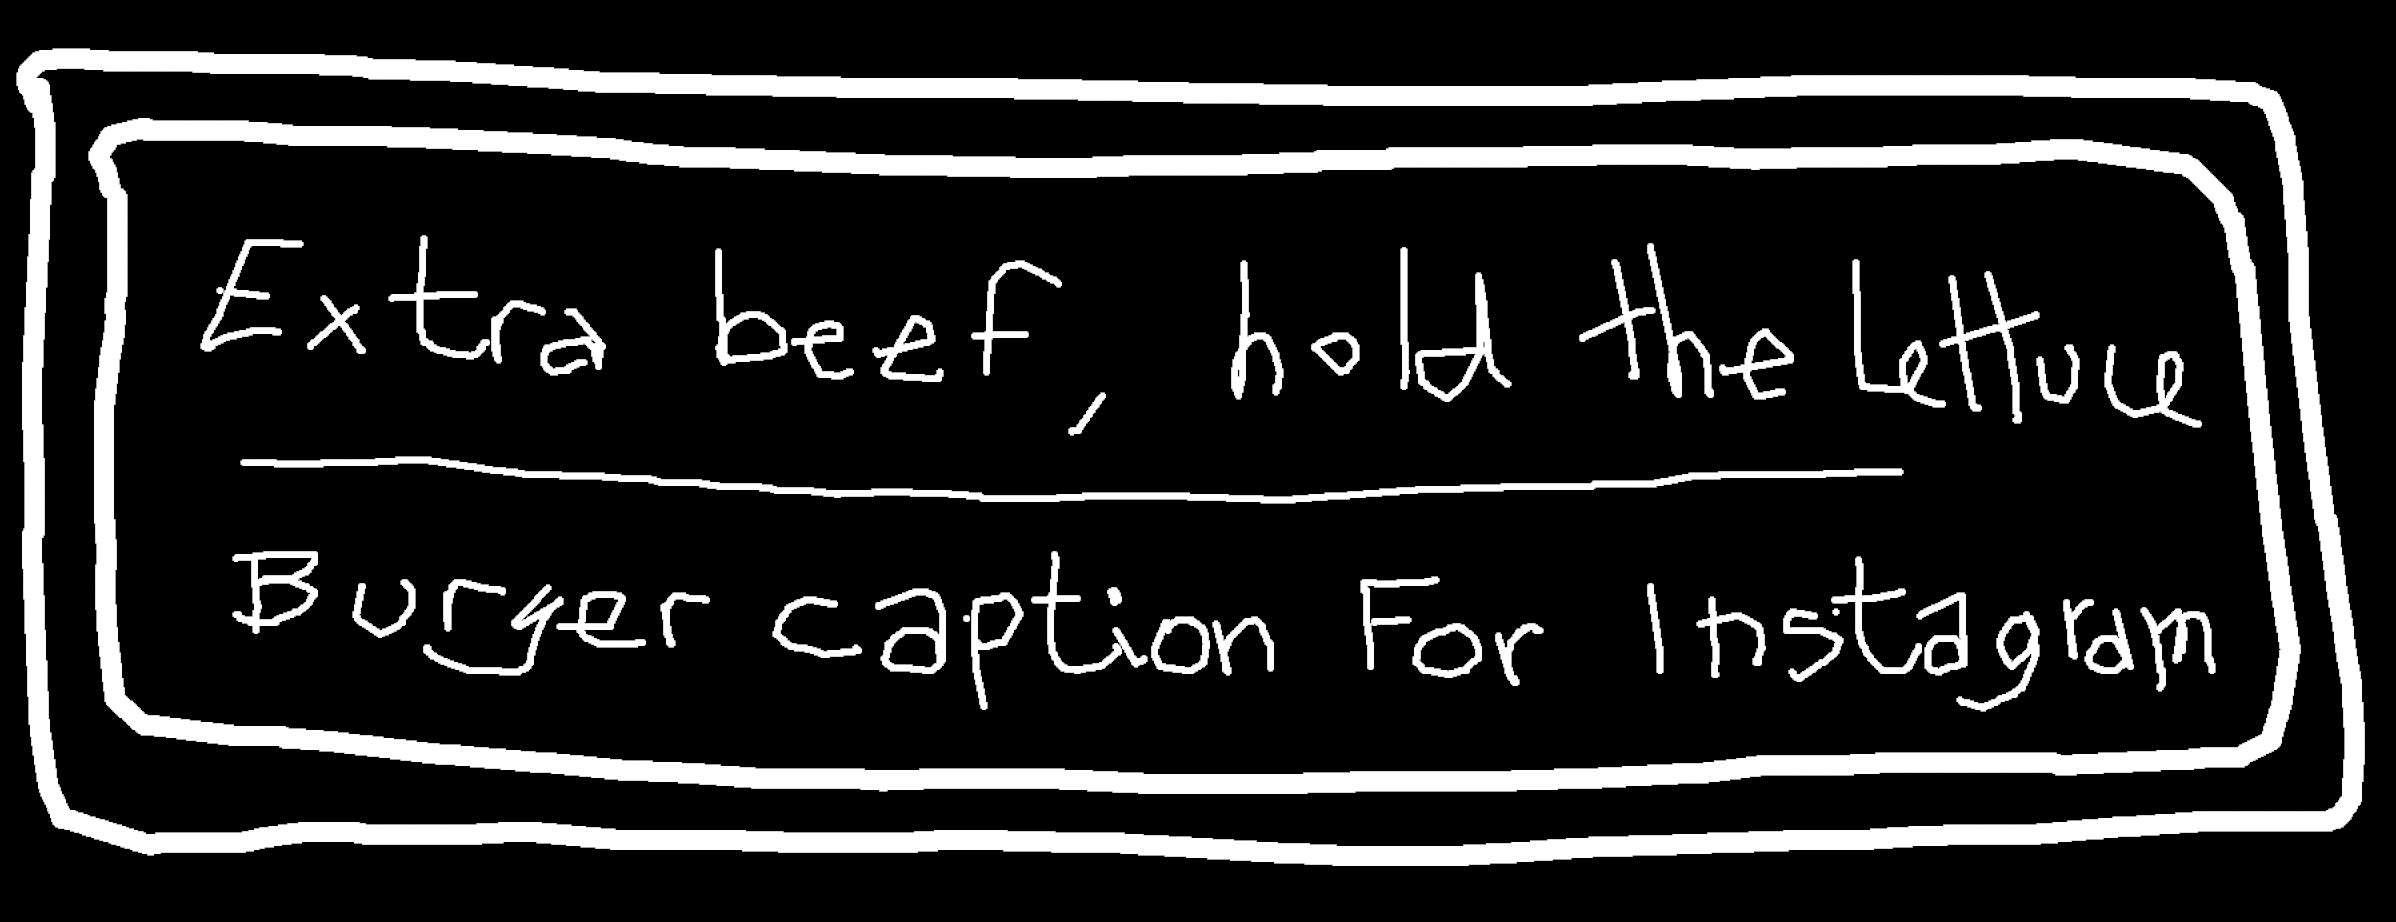 Extra beef, hold the lettuce
Burger caption For Instagram